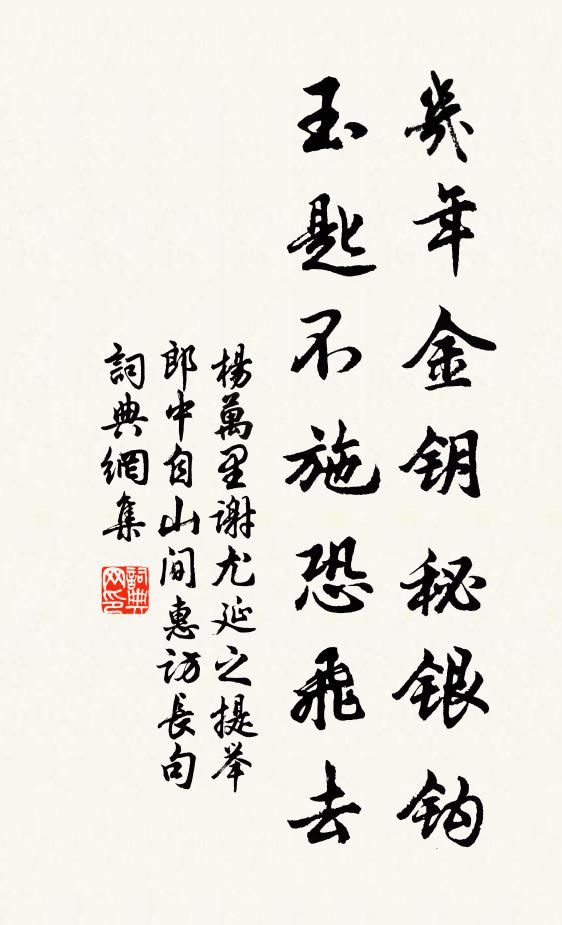 幾年金钥秘銀鈎
玉匙不施恐飛去
楊萬里谢尤延之提举
郎中自山间惠访長句
詞典網集
詞典网印